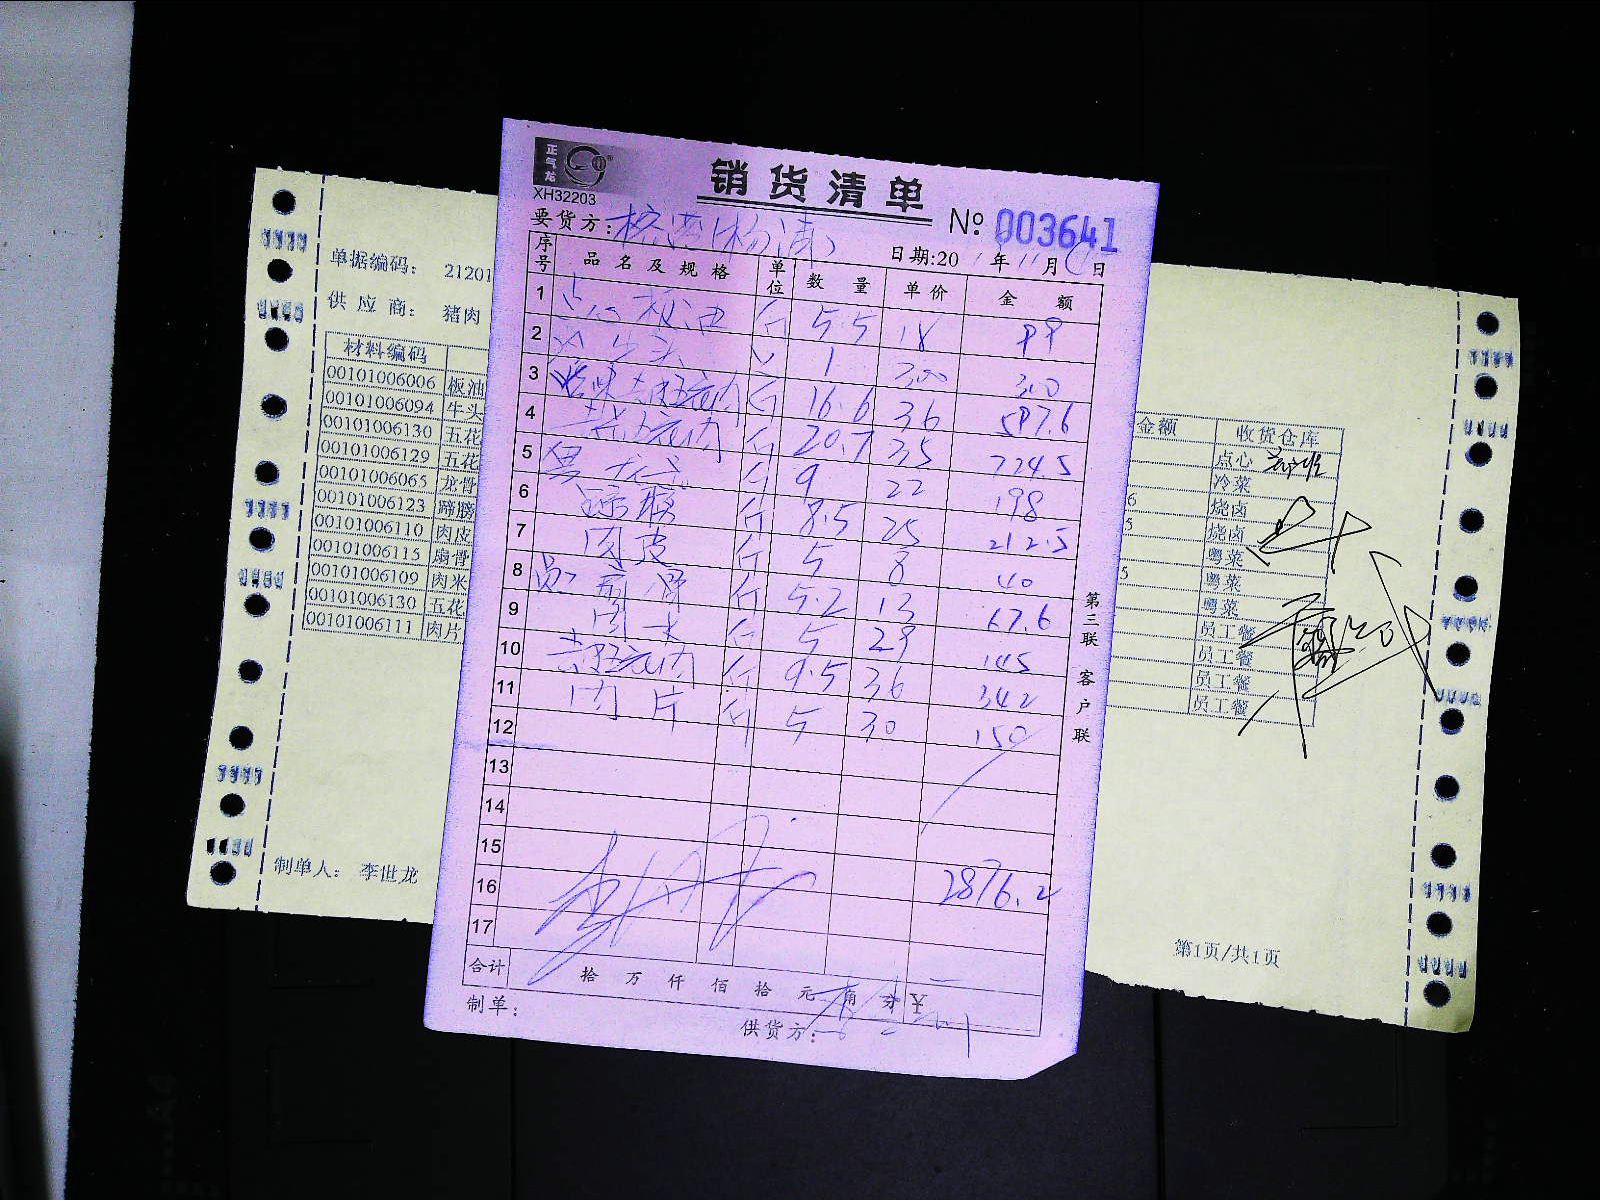 正气龙
XH32203
销货清单
№ 003641
要货方:
日期:20 1 年 11 月 日
序号 品名及规格 单位 数量 单价 金额
1 点心 板油 斤 5.5 18 99
2 1 300 300
3 烧味 去皮五花肉 斤 16.6 36 597.6
4 去皮五花肉 斤 20.7 35 724.5
5 粤 龙骨 斤 9 22 198
6 蹄膀 斤 8.5 25 212.5
7 肉皮 斤 5 8 40
8 员工 扇骨 斤 5.2 13 67.6
9 肉米 斤 5 29 145
10 去皮五花肉 斤 9.5 36 342
11 肉片 斤 5 30 150
12
13
14
15
16 2876.2
17
合计 拾 万 仟 佰 拾 元 角 分 ¥
制单:
供货方:
第三联 客户联
单据编码: 21201
供应商: 猪肉
材料编码
00101006006 板油
00101006094 牛头
00101006130 五花
00101006129 五花
00101006065 龙骨
00101006123 蹄膀
00101006110 肉皮
00101006115 扇骨
00101006109 肉米
00101006130 五花
00101006111 肉片
制单人: 李世龙
金额 收货仓库
点心
冷菜
6 烧卤
5 烧卤
粤菜
5 粤菜
粤菜
员工餐
员工餐
员工餐
员工餐
第1页/共1页